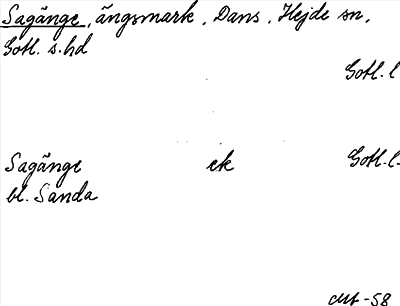 Sagänge, ängsmark, Dans, Hejde sn,
Gotl. s. hd
Gotl. l
Sagänge ek Gotl. l.
bl. Sanda
-58